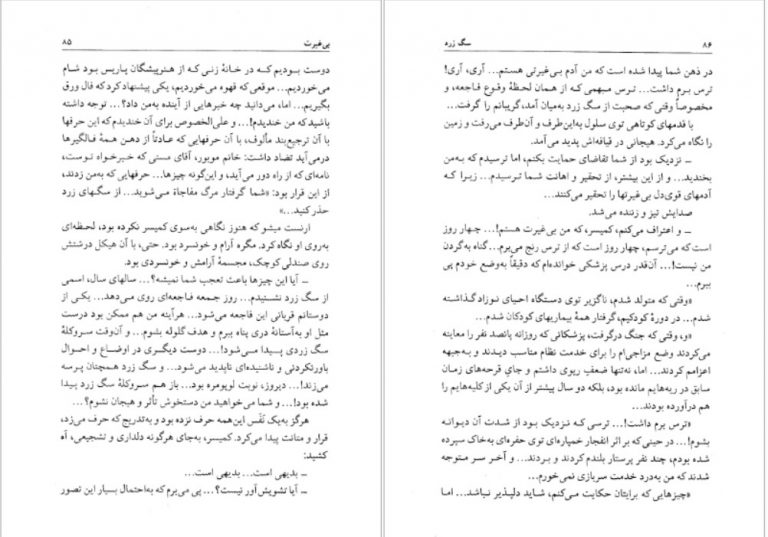 بی‌غیرت ۸۵
دوست بودیم که در خانهٔ زنی که از هنرپیشگان پاریس بود شام
می‌خوردیم... موقعی که قهوه می‌خوردیم، یکی پیشنهاد کرد که فال ورق
بگیریم... اما، می‌دانید چه خبرهایی از آینده به‌من داد؟... توجه داشته
باشید که من خندیدم!... و علی‌الخصوص برای آن خندیدم که این حرفها
با آن ترجیع‌بند مألوف، با آن حرفهایی که عادتاً از دهن همهٔ فالگیرها
درمی‌آید تضاد داشت: خانم موبور، آقای مسنی که خیرخواه توست،
نامه‌ای که از راه دور می‌آید، و این‌گونه چیزها... حرفهایی که به‌من زدند،
از این قرار بود: «شما گرفتار مرگ مفاجاة می‌شوید... از سگهای زرد
حذر کنید...»
ارنست میشو که هنوز نگاهی به‌سوی کمیسر نکرده بود، لحظه‌ای
به‌روی او نگاه کرد. مگره آرام و خونسرد بود. حتی، با آن هیکل درشتش
روی صندلی کوچک، مجسمهٔ آرامش و خونسردی بود.
ــ آیا این چیزها باعث تعجب شما نمیشه؟... سالهای سال، اسمی
از سگ زرد نشنیدم... روز جمعه فاجعه‌ای روی می‌دهد... یکی از
دوستانم قربانی این فاجعه می‌شود... هرآینه من هم ممکن بود درست
مثل او به‌آستانهٔ دری پناه ببرم و هدف گلوله بشوم... و آن‌وقت سروکلهٔ
سگ زردی پیدا می‌شود!... دوست دیگری در اوضاع و احوال
باورنکردنی و ناشنیده‌ای ناپدید می‌شود... و سگ زرد همچنان پرسه
می‌زند!... دیروز، نوبت لوپومره بود... باز هم سروکلهٔ سگ زرد پیدا
شده بود!... و شما می‌خواهید من دستخوش تأثر و هیجان نشوم؟...
هرگز به‌یک نَفَس این‌همه حرف نزده بود و به‌تدریج که حرف می‌زد،
قرار و متانت پیدا می‌کرد. کمیسر، به‌جای هرگونه دلداری و تشجیعی، آه
کشید:
ــ بدیهی است... بدیهی است...
ــ آیا تشویش‌آور نیست؟... پی می‌برم که به‌احتمال بسیار این تصور
۸۶ سگ زرد
در ذهن شما پیدا شده است که من آدم بی‌غیرتی هستم... آری، آری!
ترس برم داشت... ترس مبهمی که از همان لحظهٔ وقوع فاجعه، و
مخصوصاً وقتی که صحبت از سگ زرد به‌میان آمد، گریبانم را گرفت...
با قدمهای کوتاهی توی سلول به‌این‌طرف و آن‌طرف می‌رفت و زمین
را نگاه می‌کرد. هیجانی در قیافه‌اش پدید می‌آمد.
ــ نزدیک بود از شما تقاضای حمایت بکنم، اما ترسیدم که به‌من
بخندید... و از این بیشتر، از تحقیر و اهانت شما ترسیدم... زیرا که
آدمهای قوی‌دل بی‌غیرتها را تحقیر می‌کنند...
صدایش تیز و زننده می‌شد.
ــ و اعتراف می‌کنم، کمیسر، که من بی‌غیرت هستم!... چهار روز
است که می‌ترسم، چهار روز است که از ترس رنج می‌برم... گناه به‌گردن
من نیست!... آن‌قدر درس پزشکی خوانده‌ام که دقیقاً به‌وضع خودم پی
ببرم...
«وقتی که متولد شدم، ناگزیر توی دستگاه احیای نوزاد گذاشته
شدم... در دورهٔ کودکیم، گرفتار همهٔ بیماریهای کودکان شدم...
«و، وقتی که جنگ درگرفت، پزشکانی که روزانه پانصد نفر را معاینه
می‌کردند وضع مزاجی‌ام را برای خدمت نظام مناسب دیدند و به‌جبهه
اعزامم کردند... اما، نه‌تنها ضعف ریوی داشتم و جای قرحه‌های زمان
سابق در ریه‌هایم مانده بود، بلکه دو سال پیشتر از آن یکی از کلیه‌هایم را
هم درآورده بودند...
«ترس برم داشت!... ترسی که نزدیک بود از شدت آن دیوانه
بشوم!... در حینی که بر اثر انفجار خمپاره‌ای توی حفره‌ای به‌خاک سپرده
شده بودم، چند نفر پرستار بلندم کردند و بردند... و آخر سر متوجه
شدند که من به‌درد خدمت سربازی نمی‌خورم...
«چیزهایی که برایتان حکایت می‌کنم، شاید دلپذیر نباشد... اما